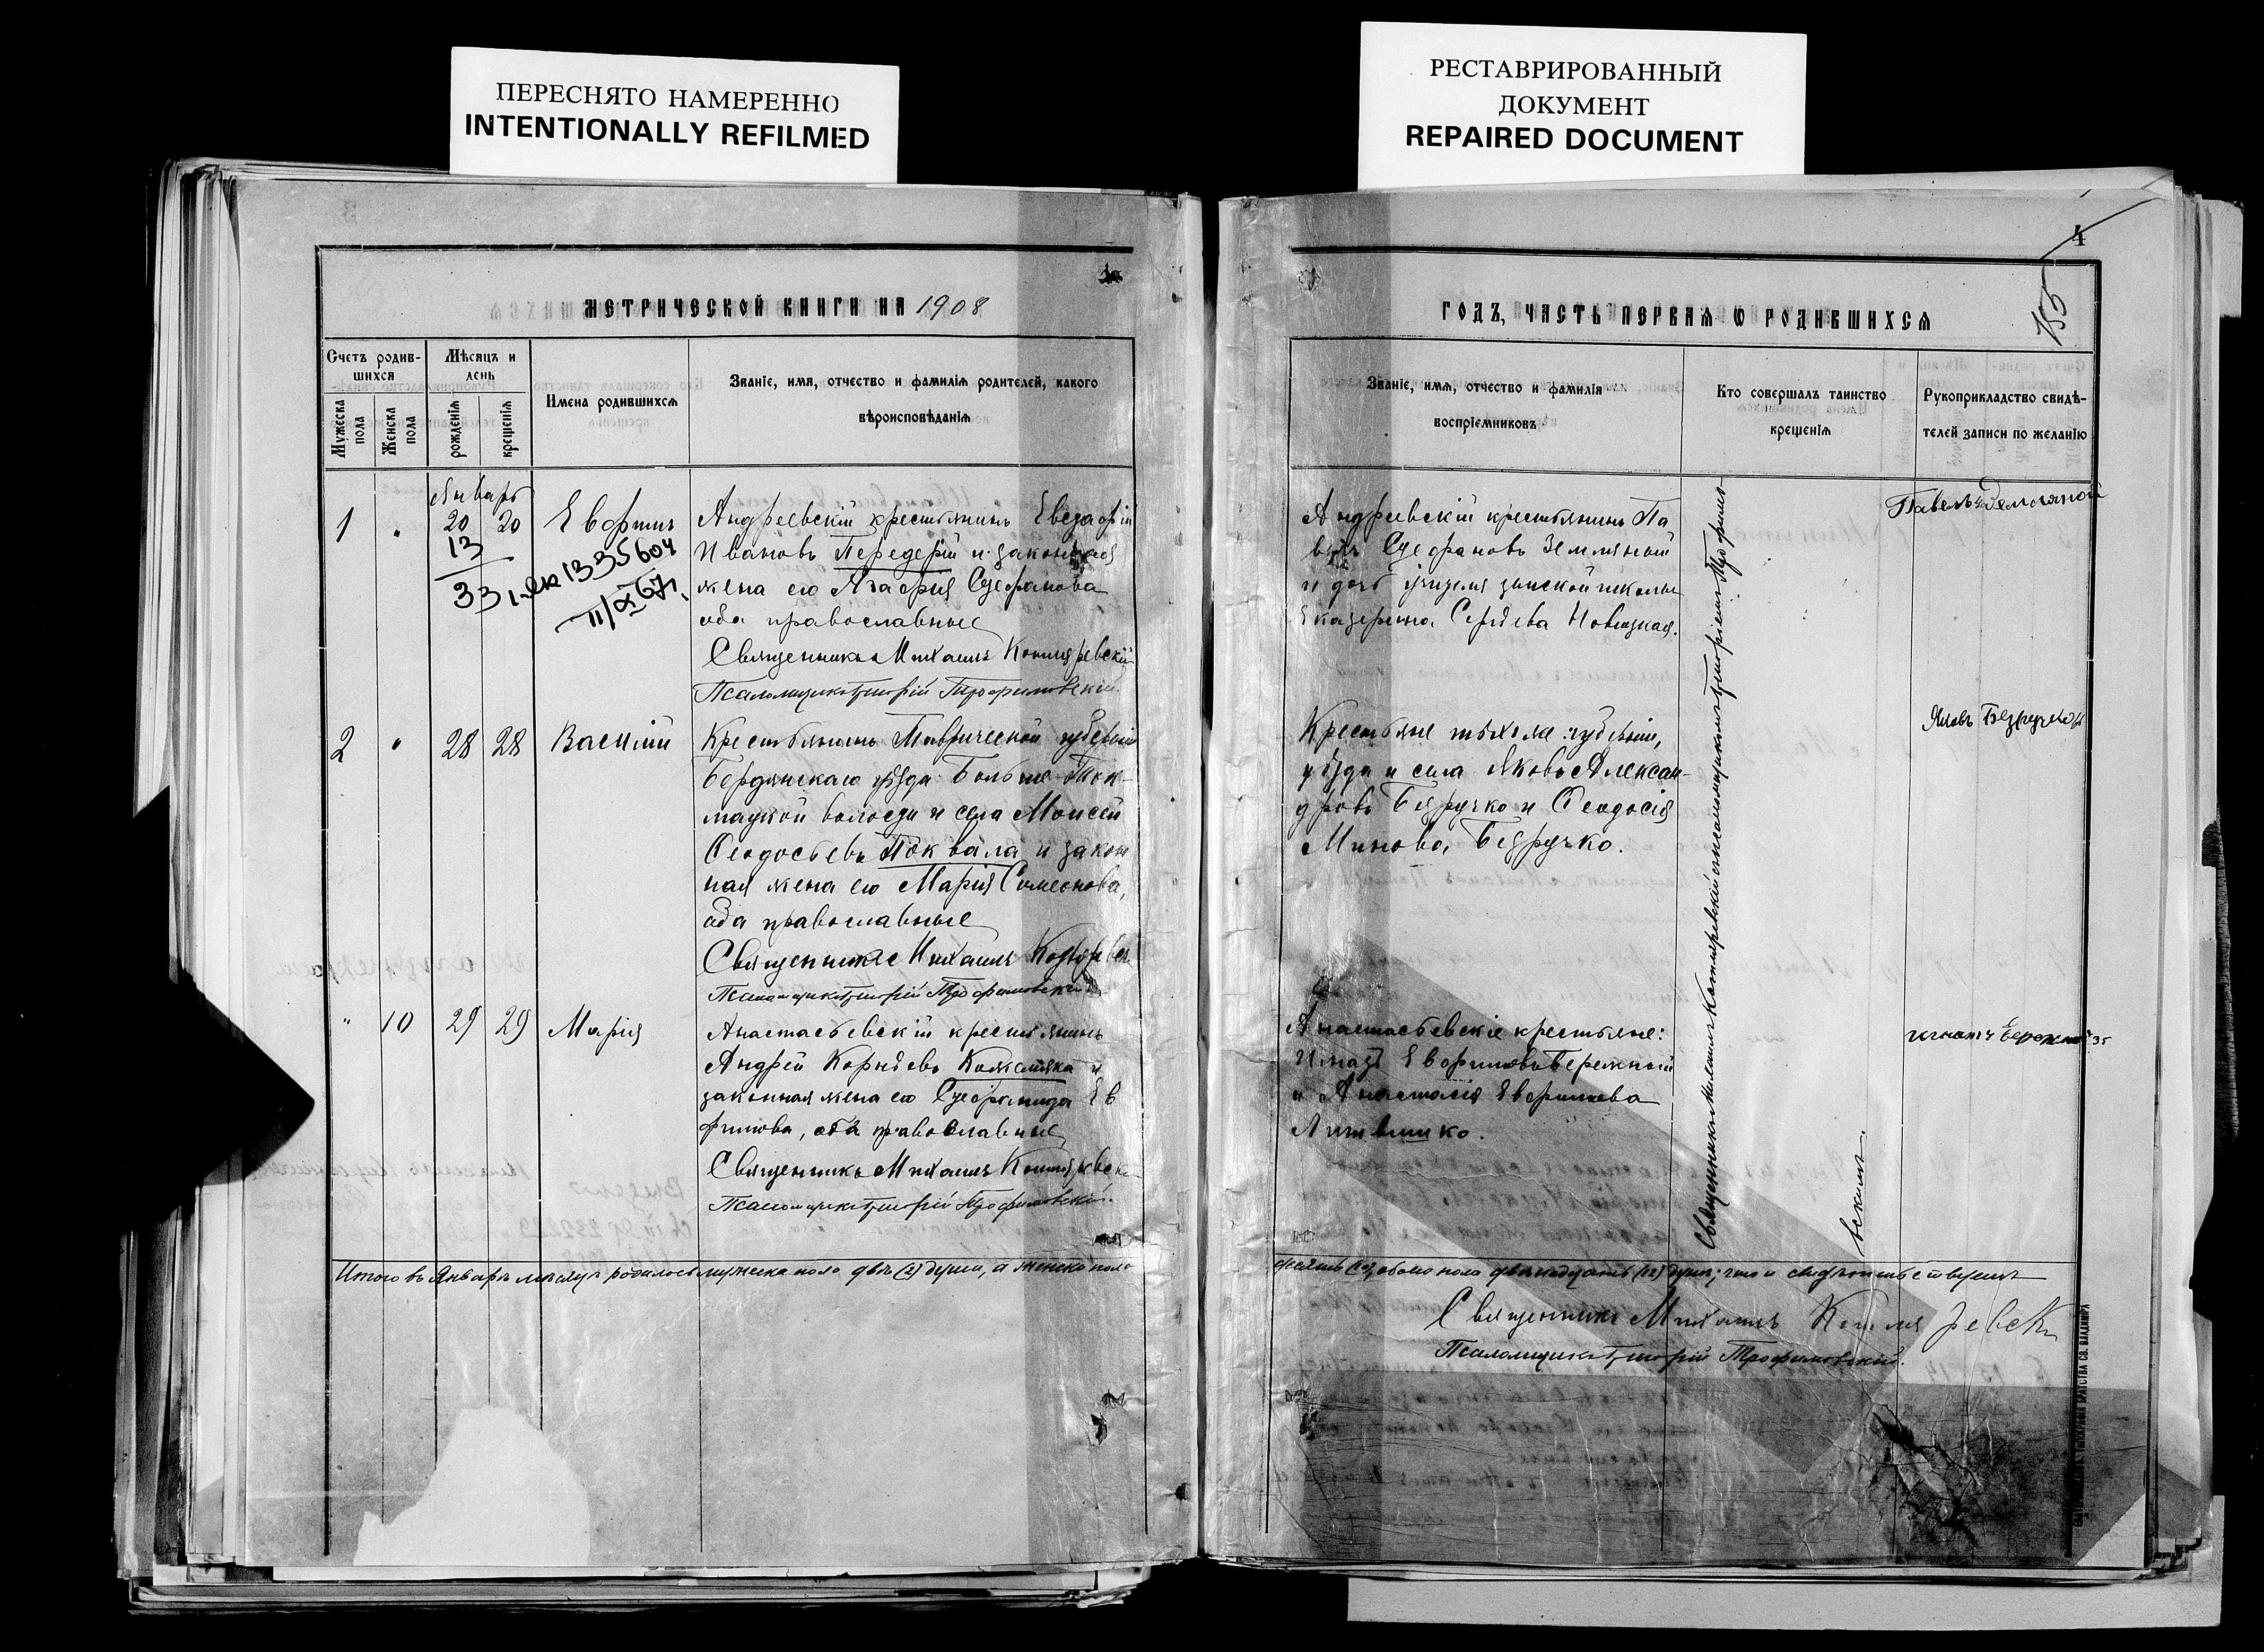 ПЕРЕСНЯТО НАМЕРЕННО
INTENTIONALLY REFILMED
РЕСТАВРИРОВАННЫЙ
ДОКУМЕНТ
REPAIRED DOCUMENT
МЕТРИЧЕСКОЙ КНИГИ НА 1908
Счетъ родив-
шихся
Мѣсяцъ и
день
Мужеска
пола
Женска
пола
рожденія
крещенія
Имена родившихся
Званіе, имя, отчество и фамилія родителей, какого
вѣроисповѣданія
Январь
1 " 20 20 Евфимъ
13
33
1335604
11/X 67г.
Андреевскій крестьянинъ
Ивановъ Передерій и законная
жена его Агафія Стефанова
оба православные
Священникъ Михаилъ Котляревскій
Псаломщикъ Григорій Трофимовскій.
2 " 28 28 Василій
Крестьянинъ Таврической губерніи
Бердянскаго уѣзда Больше-Ток-
мацкой волости и села Моисей
Феодосьевъ Поквала и закон
ная жена его Марія Симеонова,
оба православные
Священникъ Михаилъ
Псаломщикъ Григорій Трофимовскій
" 10 29 29 Марія
Анастасьевскій крестьянинъ
Андрей Корнѣевъ Кожемяка и
законная жена его Стефанида Ев
фимова, оба православные
Священникъ Михаилъ
Псаломщикъ Григорій Трофимовскій.
Итого въ Январѣ мѣсяцѣ родилось мужеска пола двѣ (2) души, а женска пола
4
ГОДЪ, ЧАСТЬ ПЕРВАЯ Ѡ РОДИВШИХСЯ
Званіе, имя, отчество и фамилія
воспріемниковъ
Кто совершалъ таинство
крещенія
Рукоприкладство свидѣ-
телей записи по желанію
Андреевскій крестьянинъ Па
велъ Стефановъ Земляный
и дочь учителя земской школы
Екатерина Сергѣева Новицкая.
Павелъ Земляной
Крестьяне тѣхъ же: губерніи,
уѣзда и села Яковъ Алексан-
дровъ Безручко и Феодосія
Минова Безручко.
Яковъ Безручко
Анастасьевскіе крестьяне:
Игнатъ Евфимовъ Бережный
и Анастасія Евфимова
Литвишко.
Игнатъ Бережный
Священникъ Михаилъ Котляревскій и псаломщикъ Григорій Трофимо-
вскимъ.
десять (10), обоего пола двѣнадцать (12) душъ; что и свидѣтельствуемъ
Священникъ Михаилъ Котляревскій
Псаломщикъ Григорій Трофимовскій.